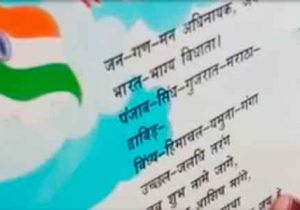 जन-गण-मन अधिनायक,
भारत-भाग्य विधाता।
पंजाब-सिंध-गुजरात-मराठा-
द्राविड़-
विंध्य-हिमाचल-यमुना-गंगा
उच्छल-जलधि तरंग
शुभ नामे जागे,
आशिष मांगे,